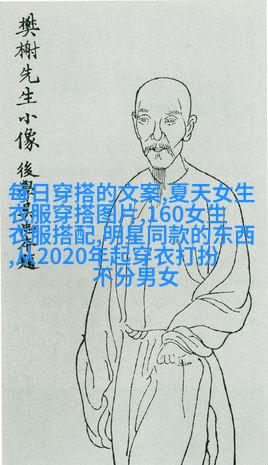 樊榭先生小像
後學
每日穿搭的文案,夏天女生
衣服穿搭图片,160女生
衣服搭配,明星同款的东西
,从2020年起穿衣打扮
不分男女